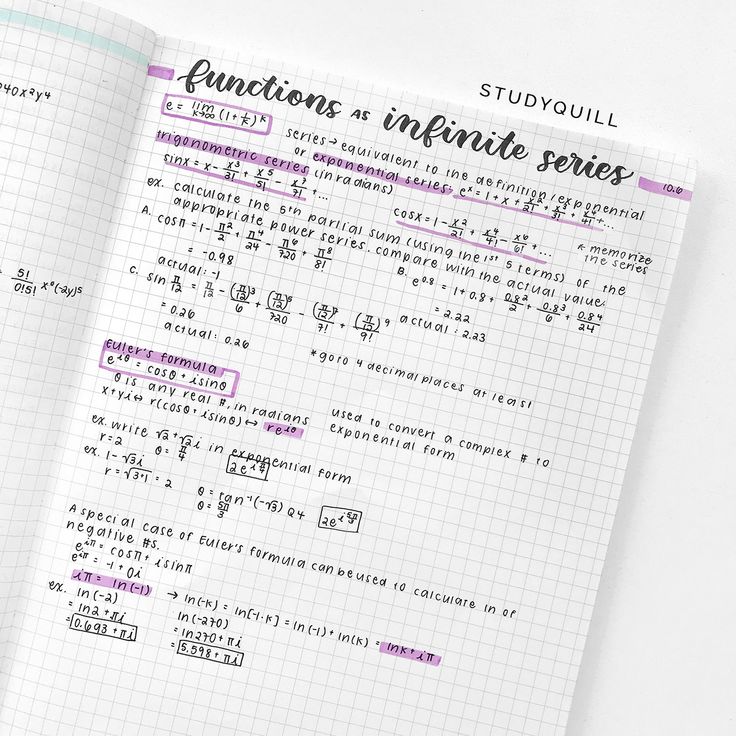 STUDYQUILL
functions as infinite series
10.6
040x²y⁴
5!/0!5! x⁰(-2y)⁵
e = lim k→∞ (1 + 1/k)^k
series → equivalent to the definition/exponential
trigonometric series (in radians) or exponential series: e^x = 1 + x + x²/2! + x³/3! + x⁴/4! + ...
sinx = x - x³/3! + x⁵/5! - x⁷/7! + ...
cosx = 1 - x²/2! + x⁴/4! - x⁶/6! + ...
← memorize the series
ex. calculate the 5th partial sum (using the 1st 5 terms) of the
appropriate power series. compare with the actual value.
A. cosπ = 1 - π²/2 + π⁴/24 - π⁶/720 + π⁸/8!
= -0.98
actual: -1
B. e^0.8 = 1 + 0.8 + 0.8²/2 + 0.8³/6 + 0.8⁴/24
= 2.22
actual: 2.23
C. sin π/12 = π/12 - (π/12)³/6 + (π/12)⁵/720 - (π/12)⁷/7! + (π/12)⁹/9!
= 0.26
actual: 0.26
*go to 4 decimal places at least
Euler's formula
e^iθ = cosθ + isinθ
θ is any real #, in radians
x+yi ↔ r(cosθ + isinθ) ↔ re^iθ
used to convert a complex # to
exponential form
ex. write √2 + √2i in exponential form
r = 2 θ = π/4 2e^iπ/4
ex. 1 - √3i
r = √3+1 = 2
θ = tan⁻¹(-√3) Q4
θ = 5π/3 2e^i5π/3
A special case of Euler's formula can be used to calculate ln of
negative #s.
e^iπ = cosπ + isinπ
e^iπ = -1 + 0i
iπ = ln(-1) → ln(-k) = ln[-1·k] = ln(-1) + ln(k) = lnk + iπ
ex. ln(-2)
= ln2 + πi
= 0.693 + πi
ln(-270)
= ln270 + πi
= 5.598 + πi